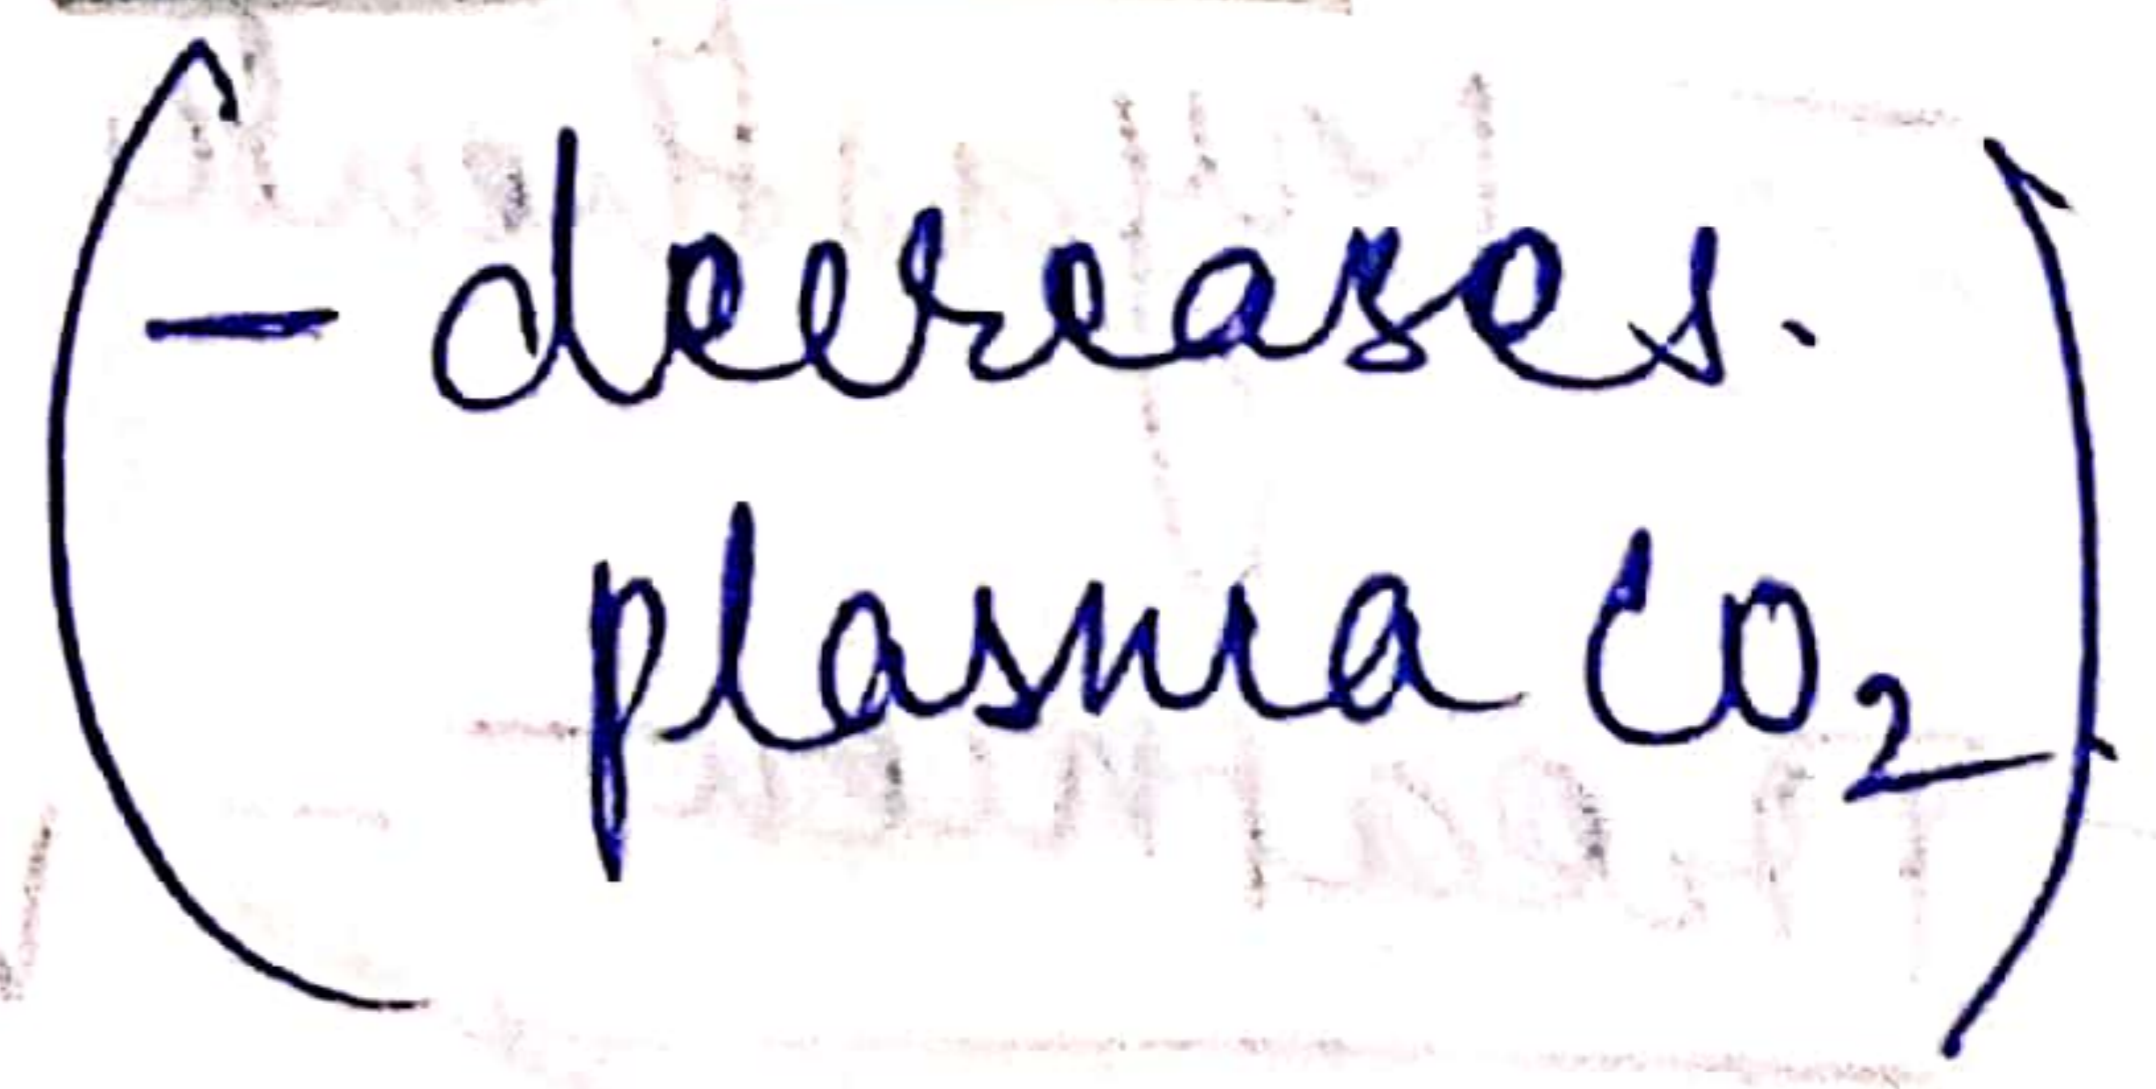 (- decreases.
plasma CO₂)